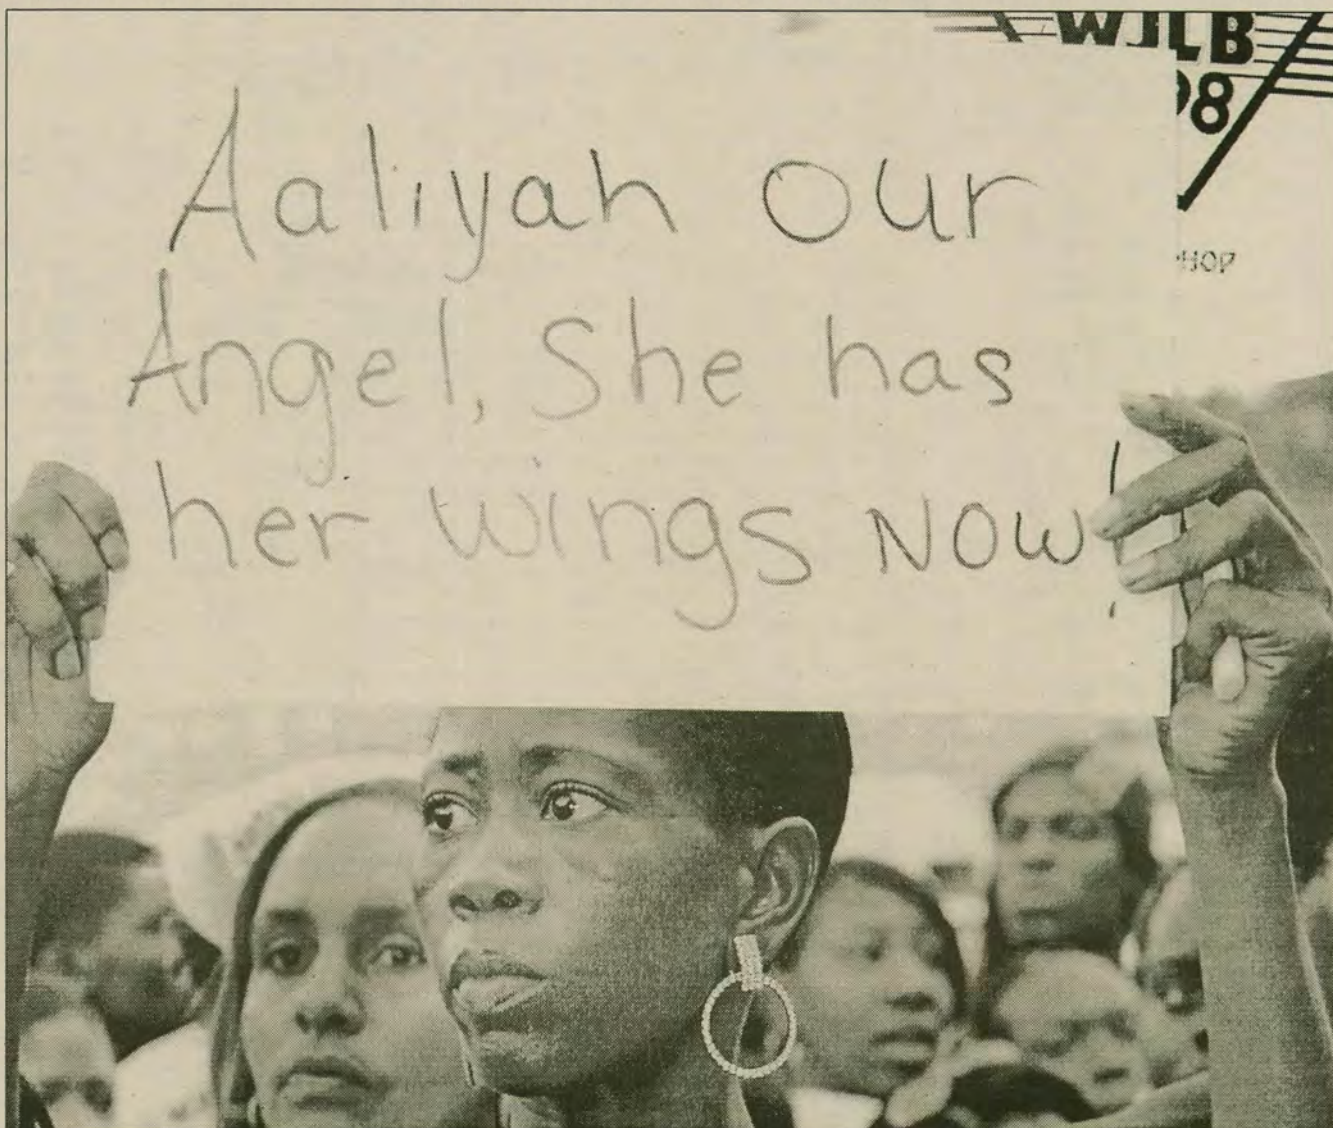 WJLB
98
HOP
Aaliyah our
Angel, She has
her wings NOW!